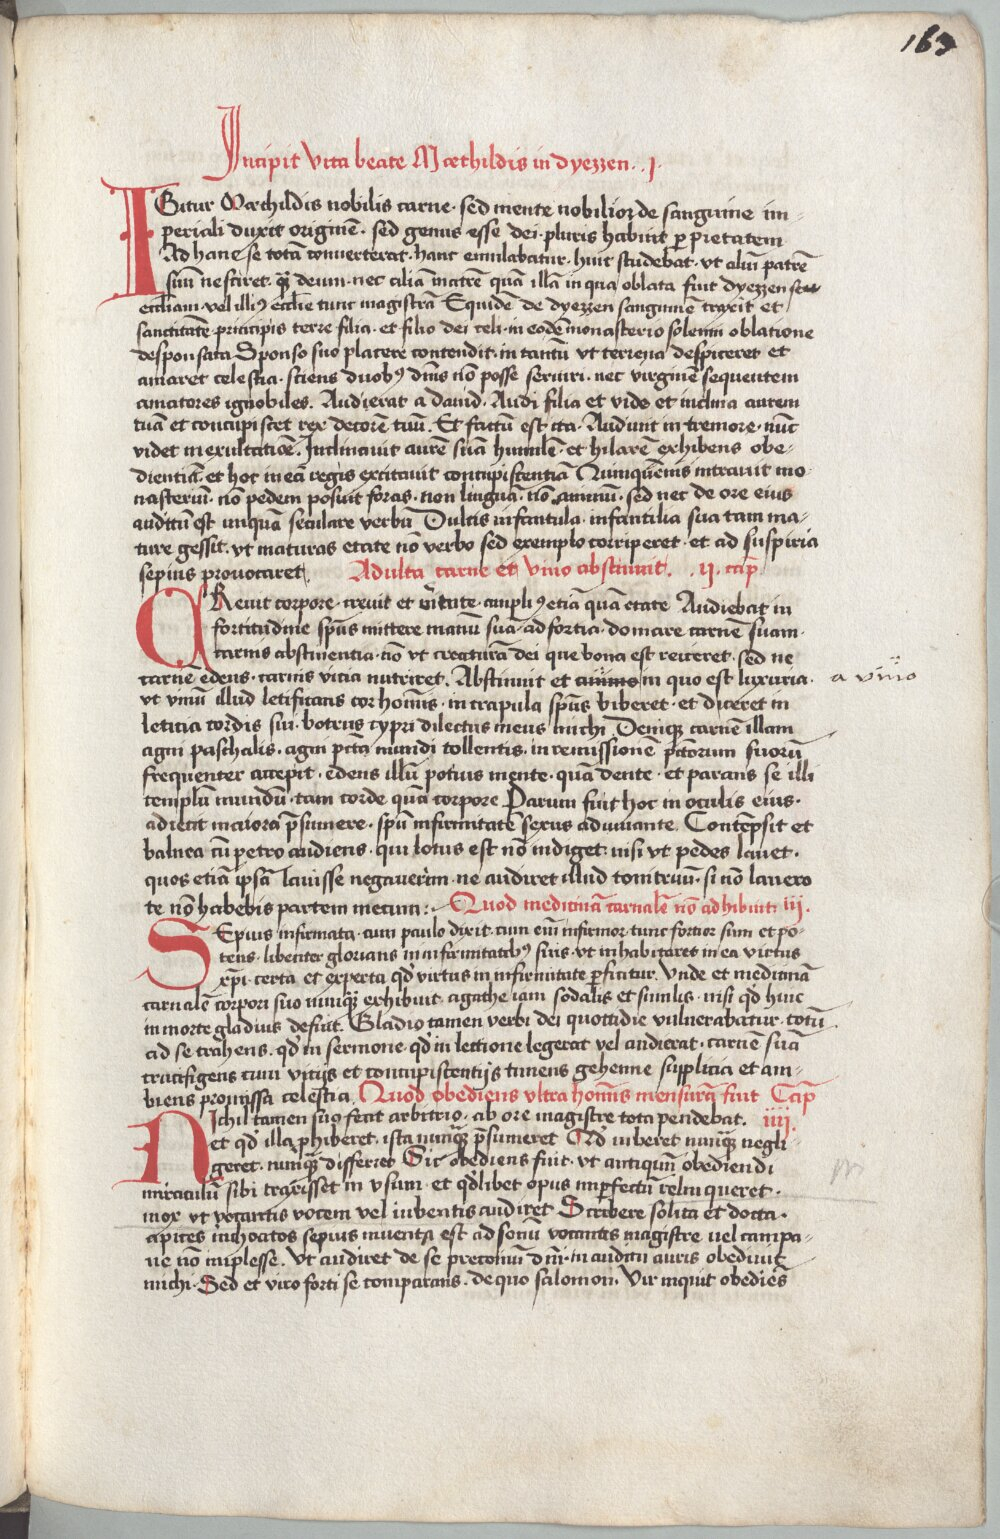 163
Incipit vita beate Mæthildis in dyezzen . I .
IGitur Mæthildis nobilis carne · sed mente nobilior de sanguine im-
periali duxit originē · sed genus esse dei · pluris habuit ꝑ pietatem
Ad hanc se totā converterat · hanc emulabatur · huic studebat · ut aliū patrē
suū nesciret · qͣꝫ deum · nec aliā matrē quā illā in qua oblata fuit dyezzen
eccliam · vel illiꝰ ecclie tunc magistrā Equidē de dyezzen sanguinē traxit et
sanctitatē principis terre filia · et filio dei celi · in eodē monasterio solemni oblatione
desponsata Sponso suo placere contendit · in tantū ut terrena despiceret et
amaret celestia · sciens duobꝰ dn̄is nō posse serviri · nec virginē sequentem
amatores ignobiles . Audierat a david · Audi filia et vide et inclina aurem
tuā et concupiscet rex decorē tuū . Et factū est ita · Audivit in tremore · nūc
videt in exultatiōe . Inclinavit aurē suā humilē · et hilarē exhibens obe-
dientiā · et hoc in eā regis excitavit concupiscentiā Nūquā enis intravit mo-
nasteriū · nō pedem posuit foras · non linguā · nō animū · sed nec de ore eius
auditū est unquā seculare verbū Dulcis infantula · infantilia sua tam ma-
ture gessit · ut maturas etate nō verbo sed exemplo corriperet · et ad suspiria
sepius provocaret . Adulta carne et vino abstinuit . . II . cap̄
CRevit corpore · crevit et v̄tute · amplíꝰ etiā quā etate Audiebat in
fortitudine sp̄us mittere manū suā · ad fortia · domare carnē suam ·
carnis abstinentia · nō ut creaturā dei que bona est reiceret · sed ne
carnē edens · carnis vicia nutriret . Abstinuit et animo in quo est luxuria · a vino
ut vinū illud letificans cor hoīnis · in crapula sp̄us biberet · et diceret in
leticia cordis sui · botrus cypri dilectus meus michi Deniqꝫ carnē illam
agni paschalis · agni pctā mundi tollentis · in remissionē pctorum suorū
frequenter accepit · edens illū potius mente · quā dente · et parans se illi
templū mundū · tam corde quā corpore Parum fuit hoc in oculis eius ·
adiecit maiora p̄sumere · sp̄u infirmitatē sexus adiuvante Contēpsit et
balnea cū petro audiens · qui lotus est nō indiget nisi ut pedes lavet ·
quos etiā ipsā lavisse negaverim · ne audiret illud tonitruū · si nō lavero
te nō habebis partem mecum : Quod medicinā carnalē nō adhibuit III .
SEpius infirmata · cum paulo dixit · cum enī infirmor · tunc fortior sum et po-
tens · libenter glorians in infirmitatibꝰ suis · ut inhabitaret in ea virtus
xp̄i · certa et experta qd̓ virtus in infirmitate ꝑficitur . Unde et medicinā
carnalē corpori suo nunqͣꝫ exhibuit · agathe iam sodalis et similis · nisi qd̓ huic
in morte gladius defuit . Gladio tamen verbi dei quottidie vulnerabatur · totū
ad se trahens . qd̓ in sermone · qd̓ in lectione legerat vel audierat · carnē suā
crucifigens cum vitijs et concupiscentijs timens gehenne supplicia et am-
biens promissa celestia . Quod obediens ultra hoīnis mensurā fuit Cap̄
NIchil tamen suo fecit arbitrio · ab ore magistre tota pendebat . IIII .
et qd̓ illa ꝓhiberet · ista nunqͣꝫ p̄sumeret Qd̓ iuberet nunqͣꝫ negli-
geret · nunqͣꝫ differret Sic obediens fuit · ut antiquū obediendi
miraculū sibi traxisset in usum · et qd̓libet opus imperfectū relinqueret ·
mox ut vocantis vocem vel iubentis audiret Scribere solita et docta ·
apices inchoatos sepius inventa est ad sonū vocantis magistre vel campa-
ne nō implesse . Ut audiret de se preconiū dn̄i · in auditu auris obedivit
michi · Sed et viro forti se comparans · de quo salomon · Vir inquit obediēs